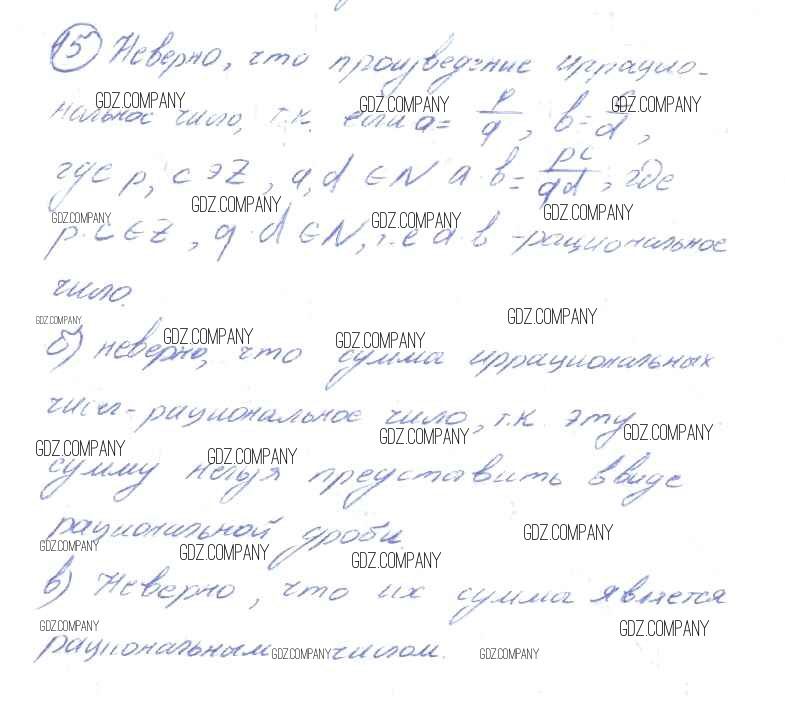 15 Неверно, что произведение иррацио-
нальное число, т.к. если a = p/q, b = c/d,
GDZ.COMPANY GDZ.COMPANY GDZ.COMPANY
где p, c ∈ Z, q, d ∈ N a·b = pc/qd, где
GDZ.COMPANY GDZ.COMPANY GDZ.COMPANY GDZ.COMPANY
p·c ∈ Z, q·d ∈ N, т.е a·b - рациональное
число.
GDZ.COMPANY GDZ.COMPANY
GDZ.COMPANY GDZ.COMPANY
б) неверно, что сумма иррациональных
чисел - рациональное число, т.к. эту
GDZ.COMPANY GDZ.COMPANY
GDZ.COMPANY GDZ.COMPANY
сумму нельзя представить в виде
рациональной дроби.
GDZ.COMPANY GDZ.COMPANY GDZ.COMPANY GDZ.COMPANY
в) Неверно, что их сумма является
GDZ.COMPANY GDZ.COMPANY
рациональным числом.
GDZ.COMPANY GDZ.COMPANY